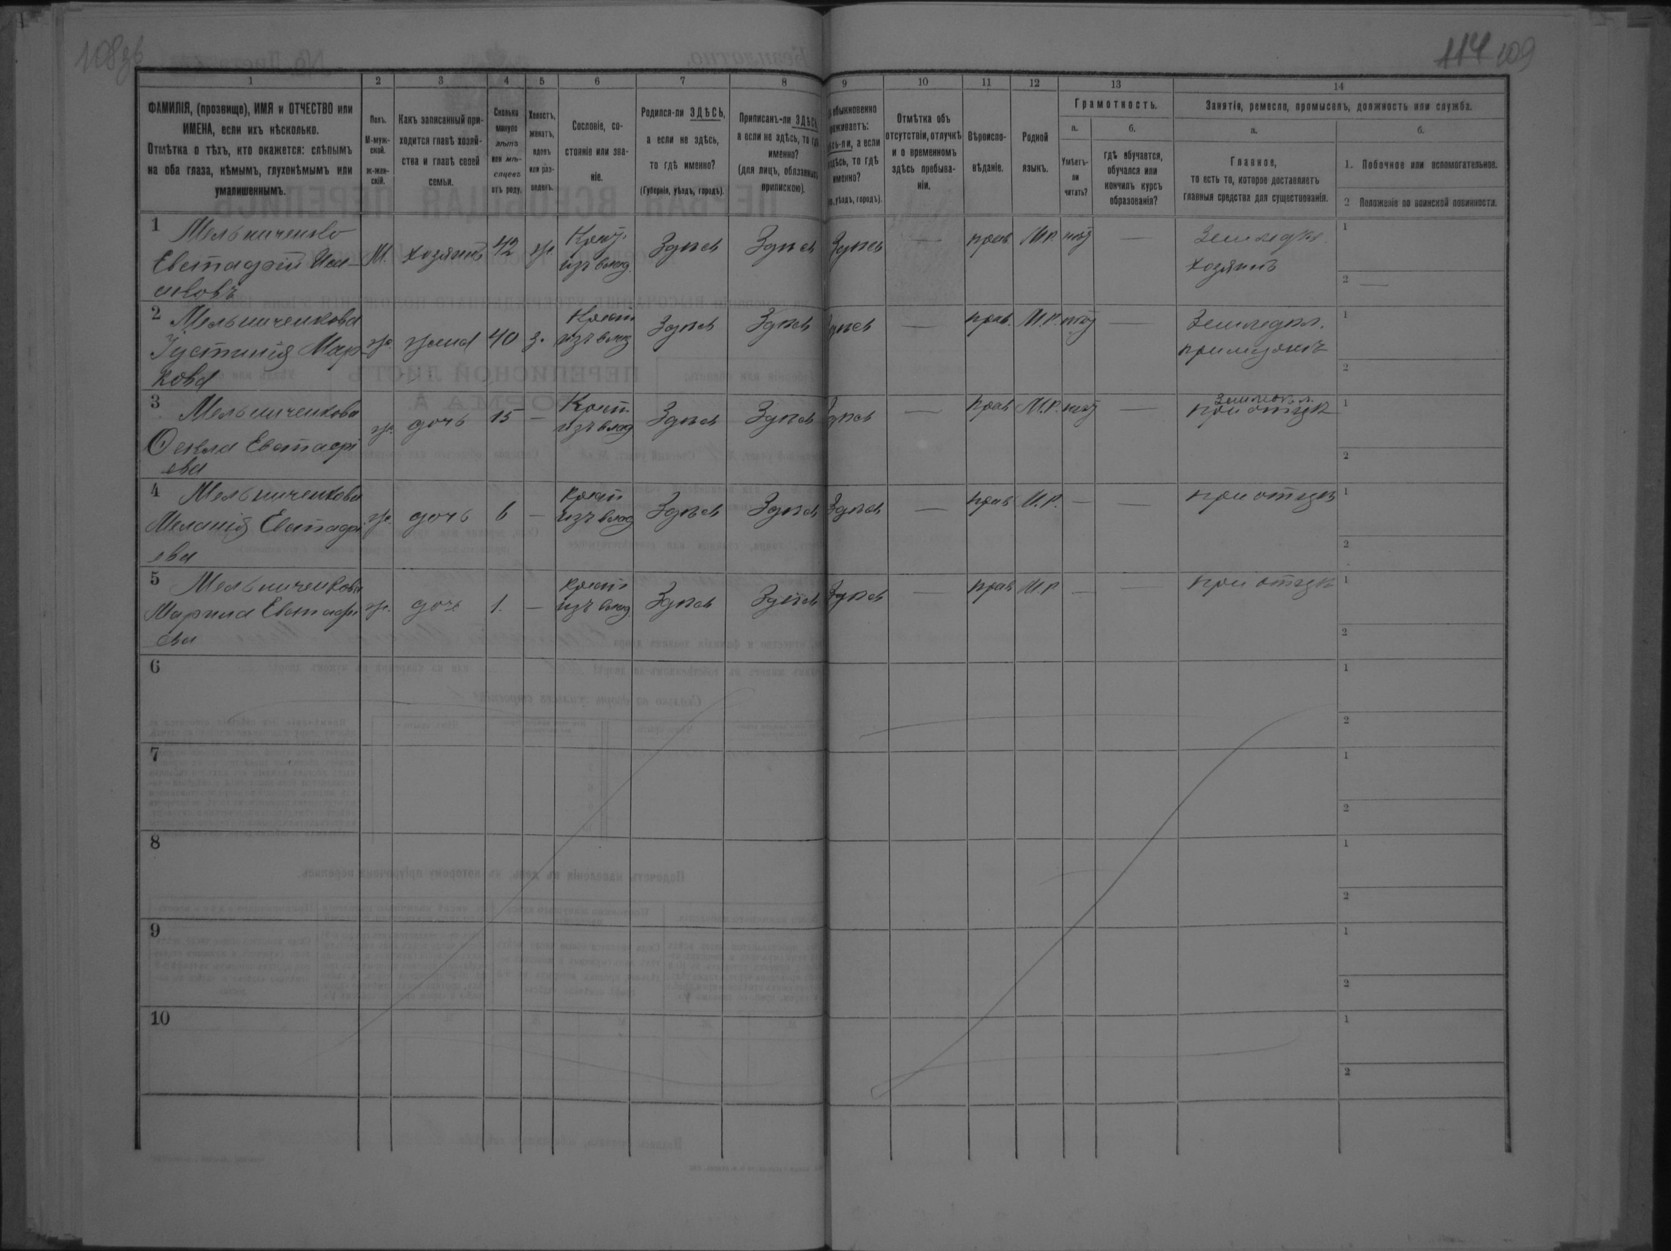 108об
114 109
1 2 3 4 5 6 7 8 9 10 11 12 13 14
ФАМИЛІЯ, (прозвище), ИМЯ и ОТЧЕСТВО или
ИМЕНА, если ихъ нѣсколько.
Отмѣтка о тѣхъ, кто окажется: слѣпымъ
на оба глаза, нѣмымъ, глухонѣмымъ или
умалишеннымъ.
Полъ.
М-муж-
ской.
ж-жен-
скій.
Какъ записанный при-
ходится главѣ хозяй-
ства и главѣ своей
семьи.
Сколько
минуло
лѣтъ
или мѣ-
сяцевъ
отъ роду.
Холостъ,
женатъ,
вдовъ
или раз-
веденъ.
Сословіе, со-
стояніе или зва-
ніе.
Родился-ли ЗДѢСЬ,
а если не здѣсь,
то гдѣ именно?
(Губернія, уѣздъ, городъ).
Приписанъ-ли ЗДѢСЬ,
а если не здѣсь, то гдѣ
именно?
(для лицъ, обязанныхъ
припискою).
обыкновенно
проживаетъ:
а если
не здѣсь, то гдѣ
именно?
уѣздъ, городъ).
Отмѣтка объ
отсутствіи, отлучкѣ
и о временномъ
здѣсь пребыва-
ніи.
Вѣроиспо-
вѣданіе.
Родной
языкъ.
Грамотность.
а.
Умѣетъ-
ли
читать?
б.
гдѣ обучается,
обучался или
кончилъ курсъ
образованія?
Занятіе, ремесло, промыселъ, должность или служба.
а.
Главное,
то есть то, которое доставляетъ
главныя средства для существованія.
б.
1. Побочное или вспомогательное.
2 Положеніе по воинской повинности.
1 Мельниченково
Евстафій
М. хозяинъ 42 ж. Крест. изъ влад Здѣсь Здѣсь Здѣсь — прав М.Р нѣт —
Земледѣл.
хозяинъ
1
2 —
2 Мельниченкова
Іустинія Мар-
кова
ж жена 40 з. Крест изъ влад Здѣсь Здѣсь Здѣсь — прав. М.Р. нѣт —
Земледѣл.
при мужѣ
1
2
3 Мельниченкова
Ѳекла Евстафі
ева
ж. дочь 15 — Крест. изъ влад Здѣсь Здѣсь Здѣсь — прав М.Р. нѣт —
Земледѣл.
при отцѣ
1
2
4 Мельниченкова
Меланія Евстафі
ева
ж. дочь 6 — Крест изъ влад Здѣсь Здѣсь Здѣсь — прав М.Р. — —
при отцѣ
1
2
5 Мельниченкова
Марина Евстафі
ева
ж. дочь 1. — крест изъ влад Здѣсь Здѣсь Здѣсь — прав М.Р — —
при отцѣ
1
2
6
1
2
7
1
2
8
1
2
9
1
2
10
1
2